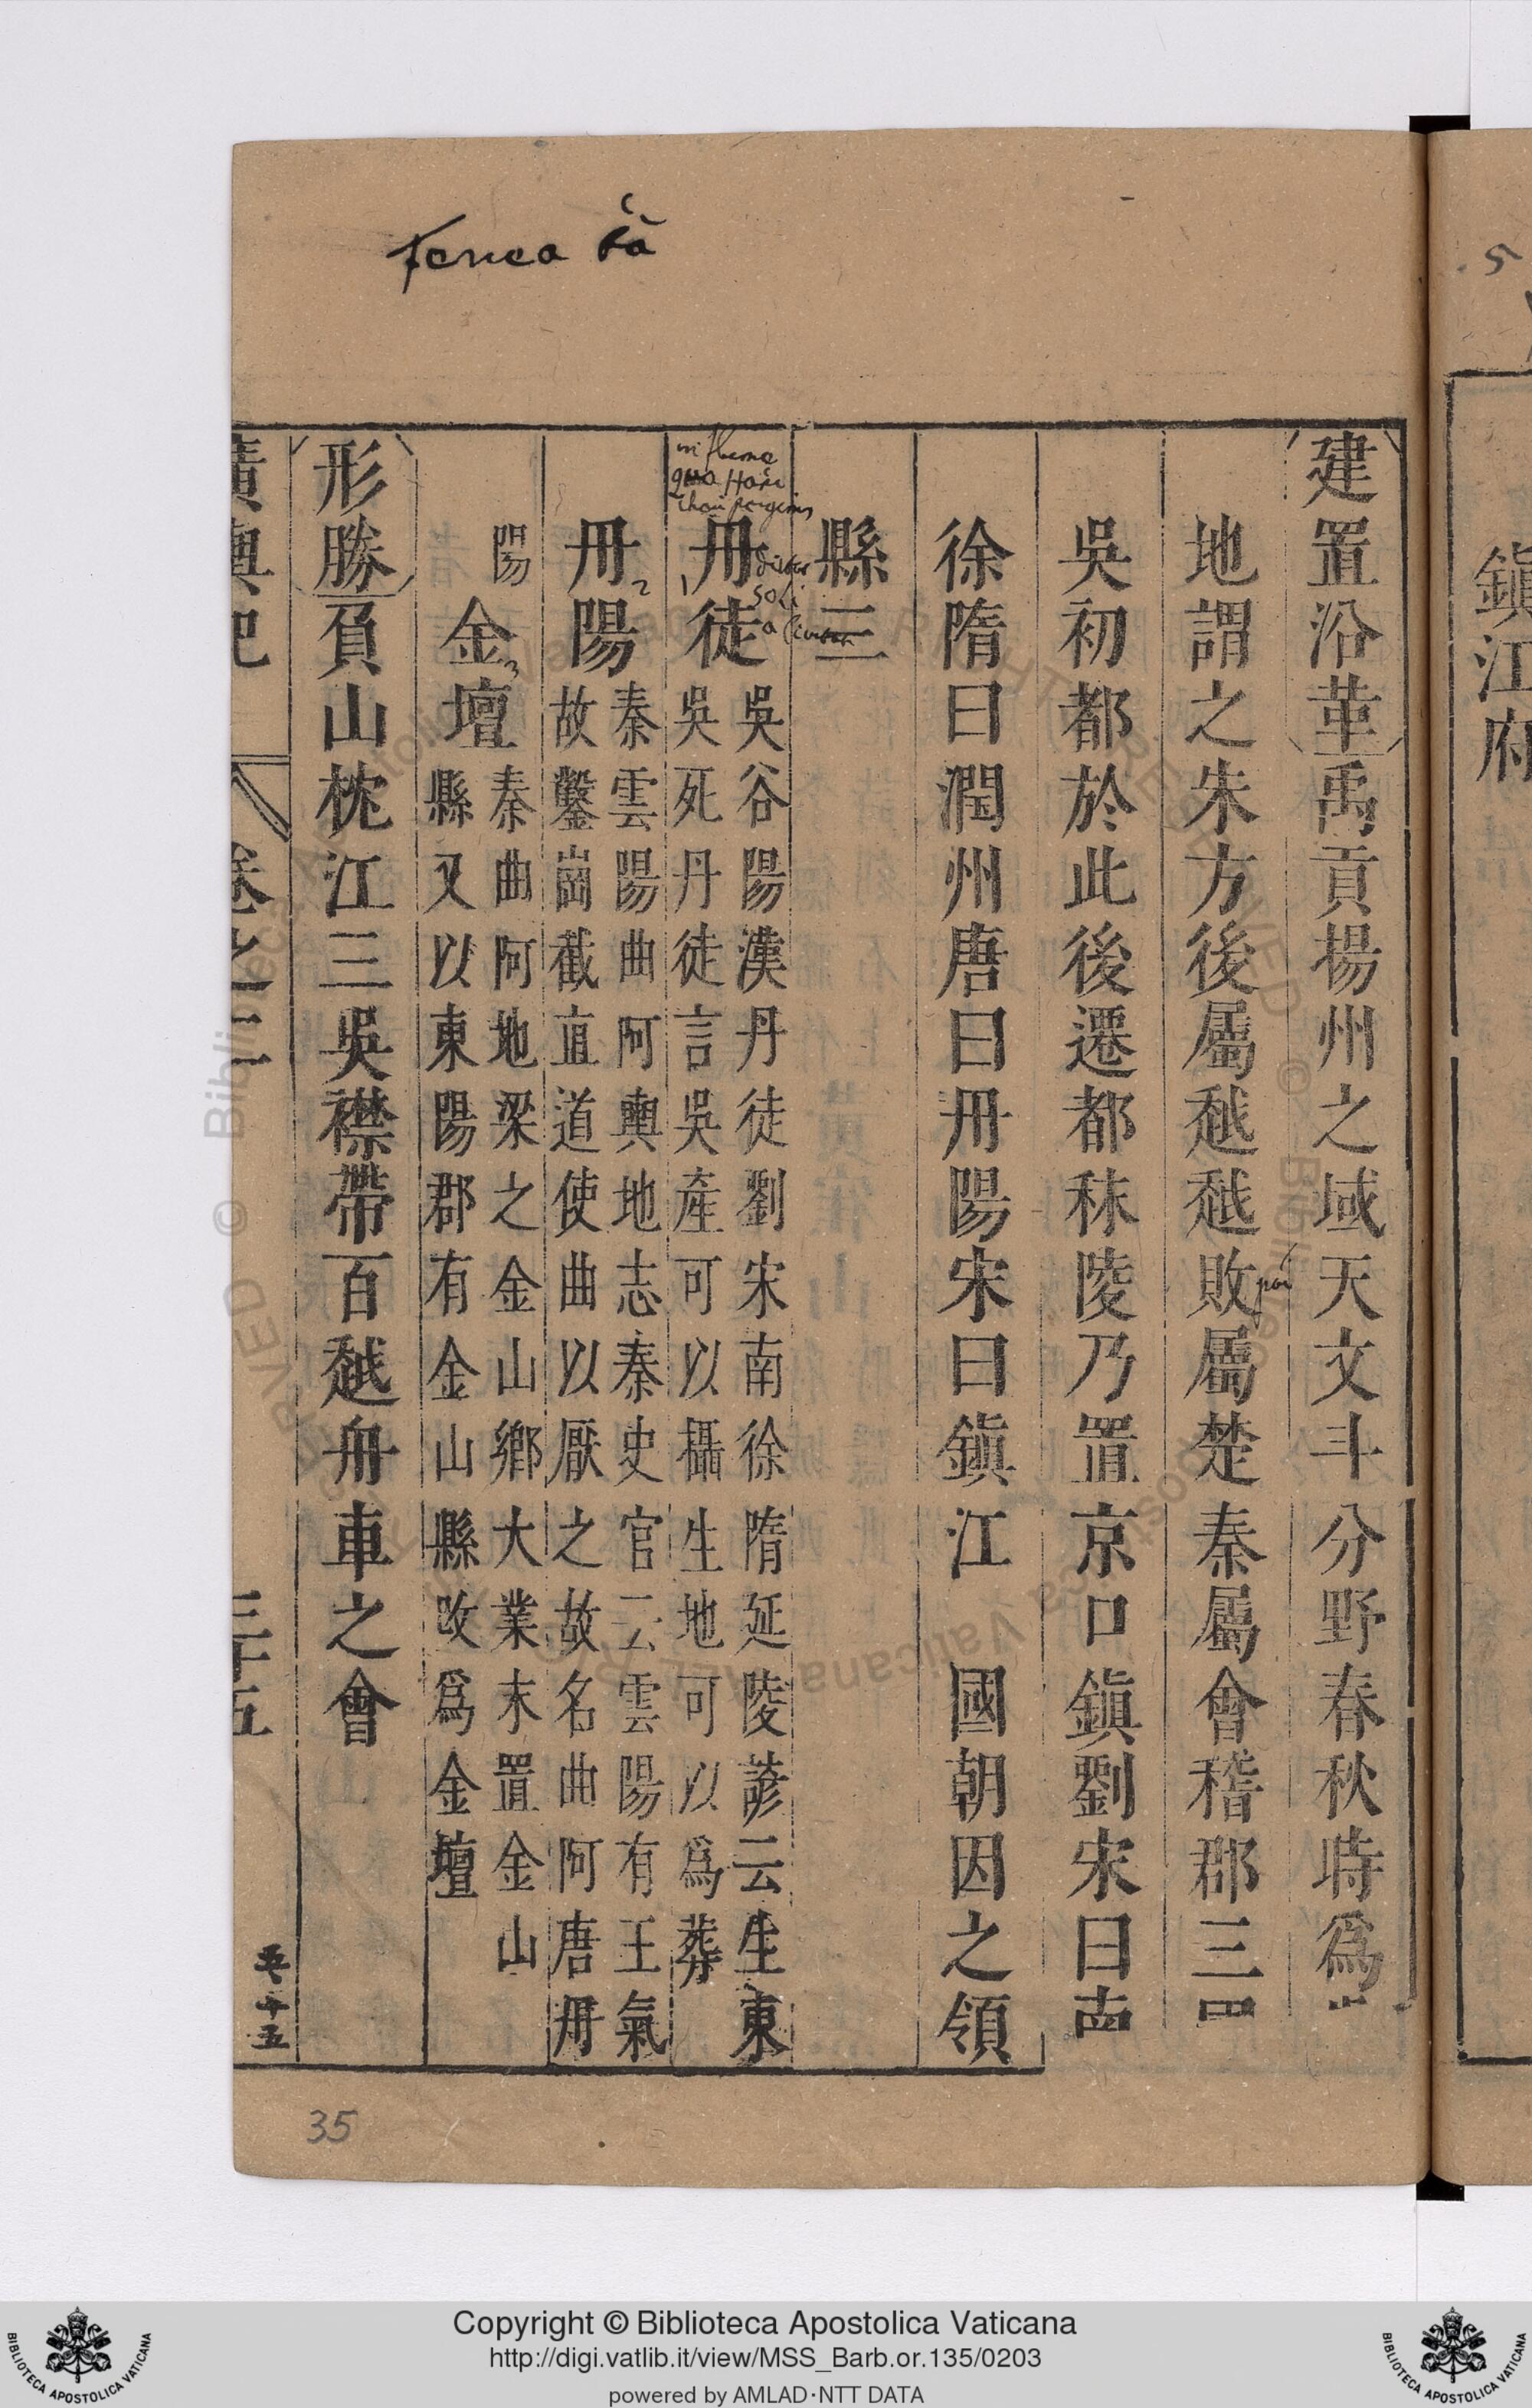 fenea
建置沿革禹貢揚州之域天文斗分野春秋時爲
地謂之朱方後屬越越敗屬楚秦屬會稽郡三
吳初都於此後遷都秣陵乃置京口鎮劉宋曰南
徐隋曰潤州唐曰丹陽宋曰鎮江 國朝因之領
縣三
丹徒吳谷陽漢丹徒劉宋南徐隋延陵諺云生東
吳死丹徒言吳產可以攝生地可以爲葬
丹陽秦雲陽曲阿輿地志秦史官云雲陽有王氣
故鑿崗截直道使曲以厭之故名曲阿唐丹
陽
金壇秦曲阿地梁之金山鄉大業末置金山
縣又以東陽郡有金山縣改爲金壇
形勝負山枕江三吳襟帶百越舟車之會
廣輿記 卷之二 三十五
五十五
1
2
3
35
鎮江府
5
Copyright © Biblioteca Apostolica Vaticana
http://digi.vatlib.it/view/MSS_Barb.or.135/0203
powered by AMLAD·NTT DATA
BIBLIOTECA APOSTOLICA VATICANA
BIBLIOTECA APOSTOLICA VATICANA